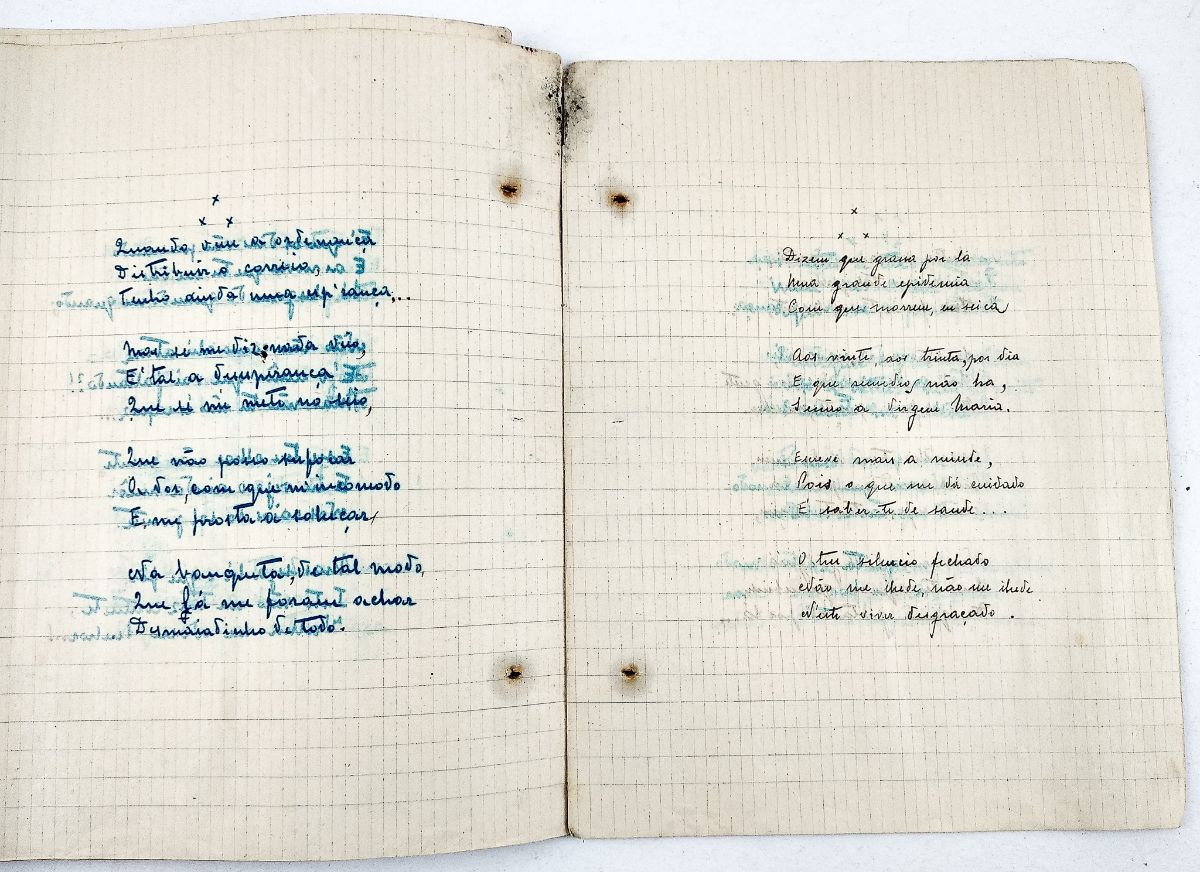 x
x x
Quando vem a ordenança
Distribuir o correio,
Tenho ainda uma esp'rança...
Mas se me diz, nada veio,
E' tal a desesperança
Que se me mete no seio,
Que não posso suportar
A dor, com que m'incomodo
E me prosta a soluçar,
Na banqueta, de tal modo,
Que já me foram achar
Desmaiadinho de todo.
x
x x
Dizem que grassa por lá
Uma grande epidemia
Com que morrem, eu sei cá
Aos vinte, aos trinta, por dia
E que remedio não ha,
Senão a Virgem Maria.
Escreve mais a miude,
Pois o que me dá cuidado
É saber-te de saude...
O teu silencio fechado
Não me ajude, não me ajude
N'este viver desgraçado.